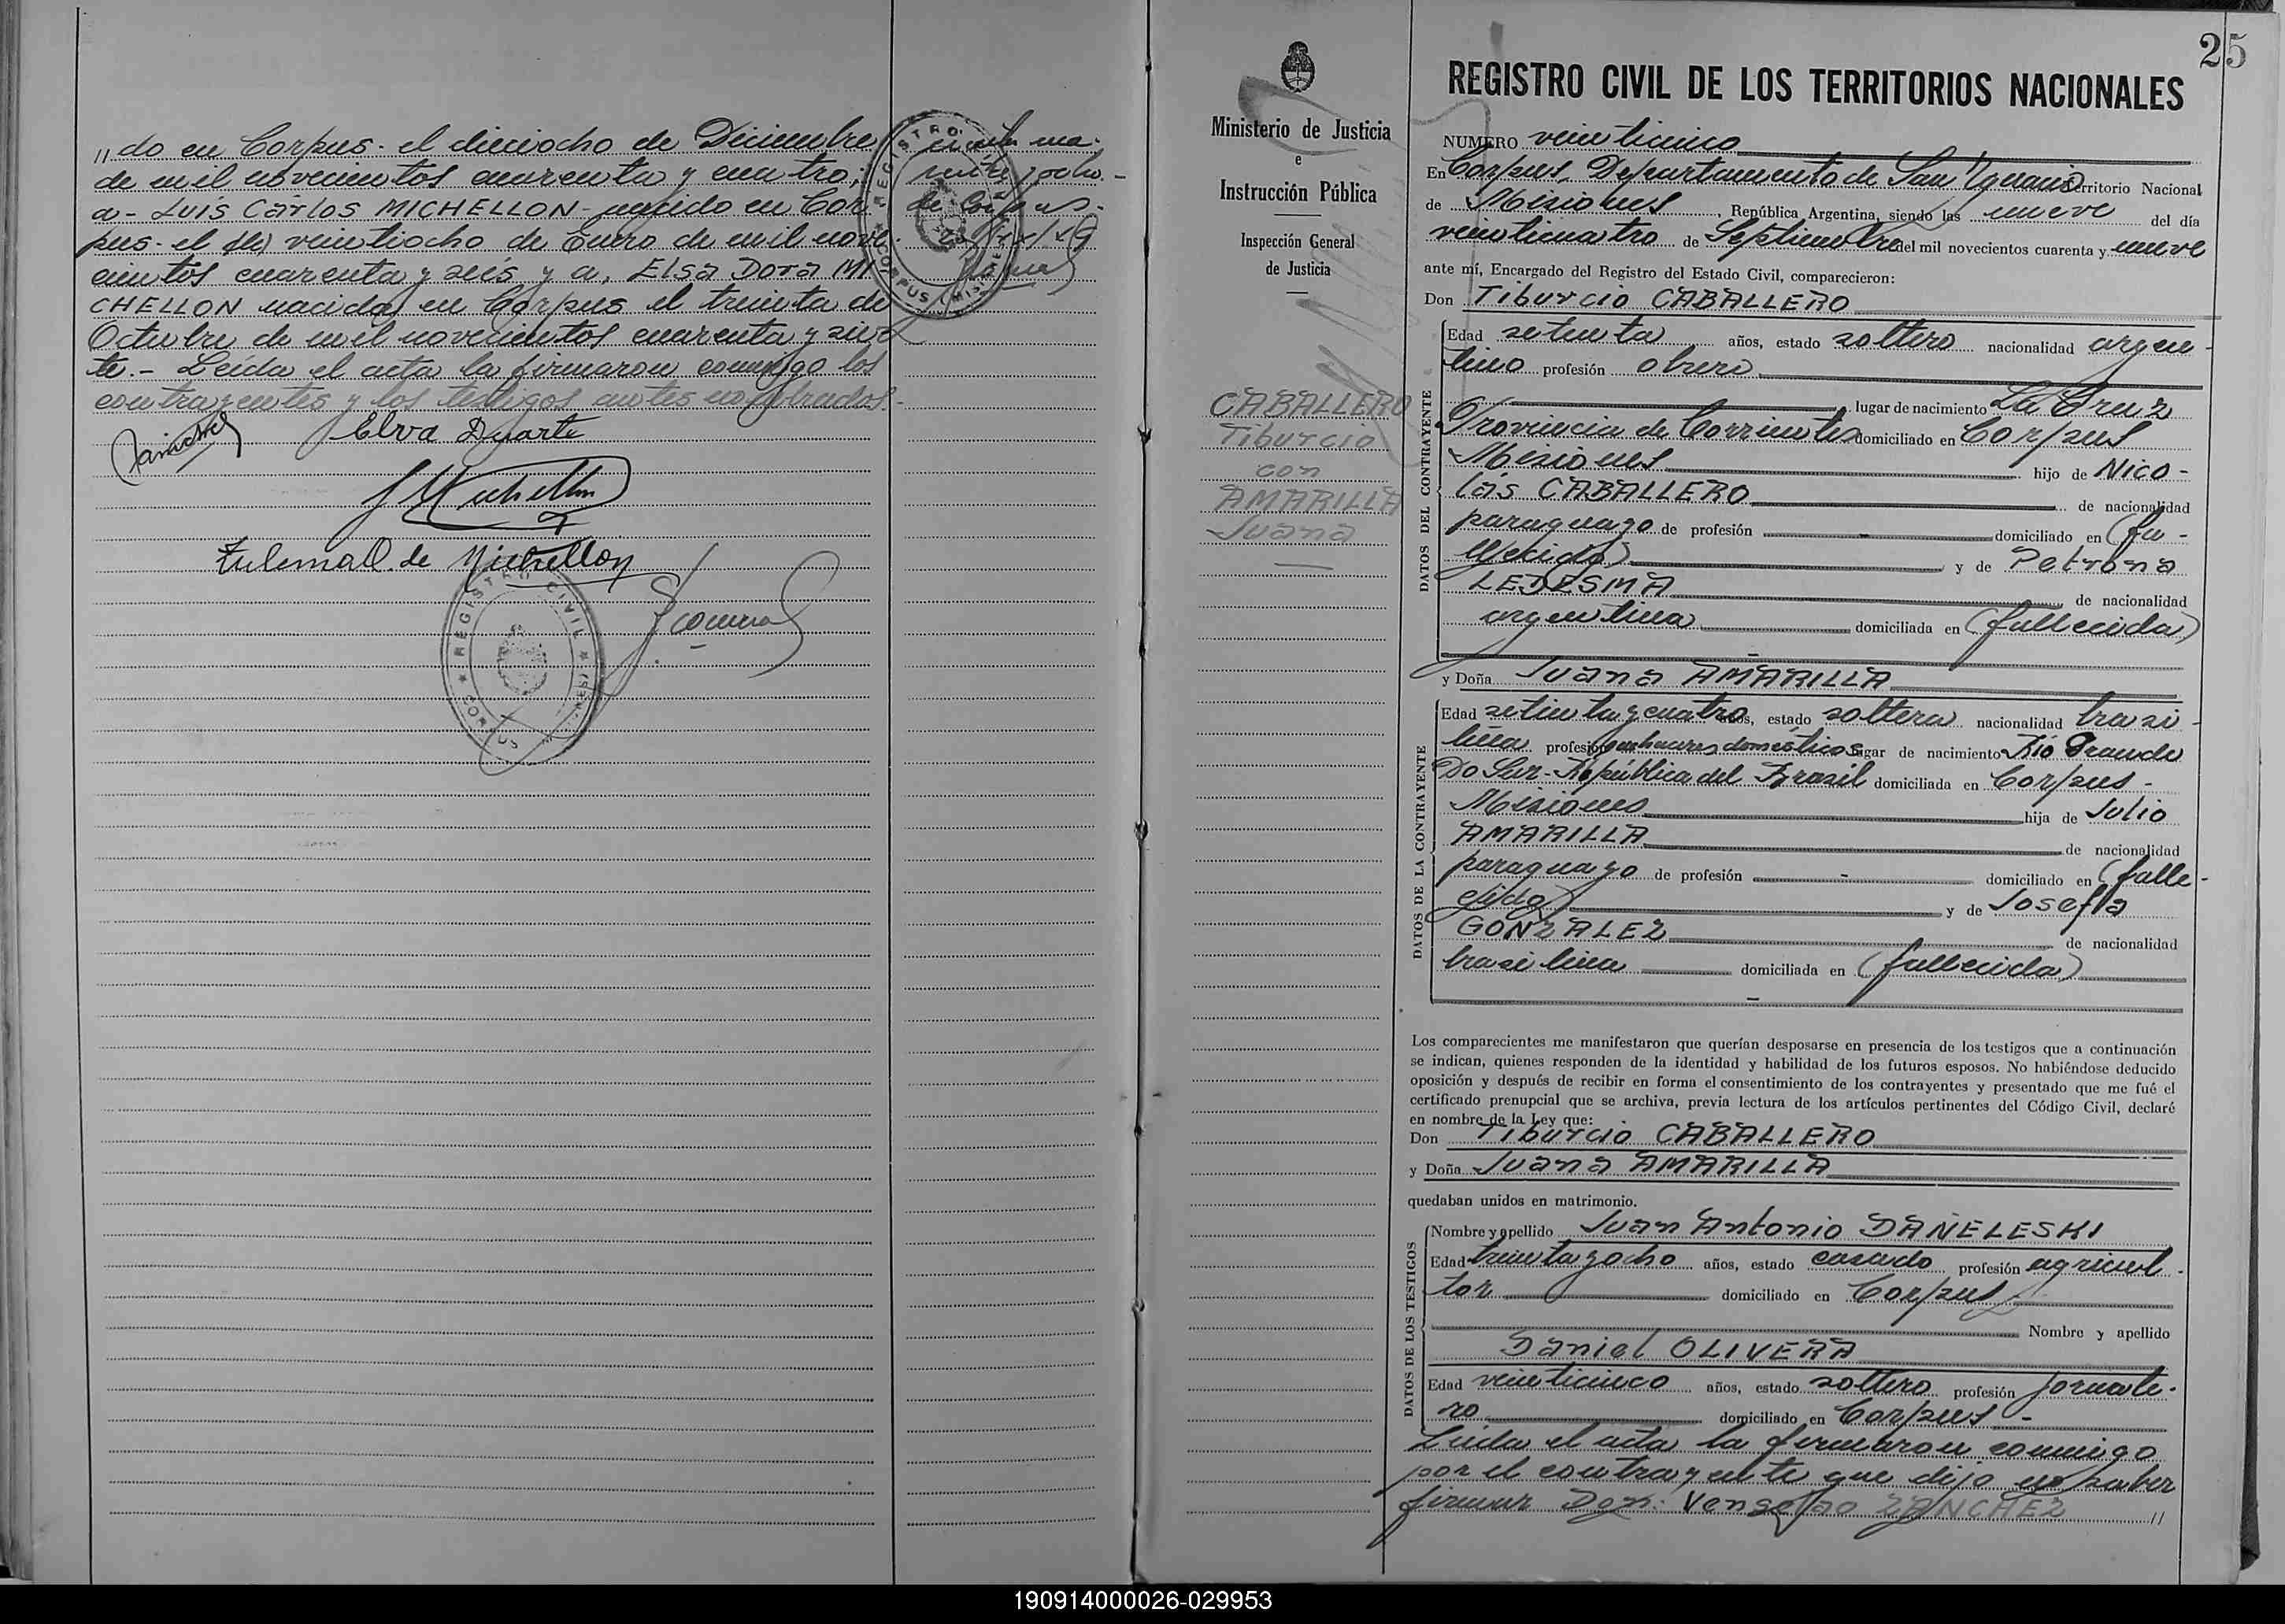 "do en Corpus - el dieciocho de Diciembre
de mil novecientos cuarenta y cuatro;
a - LUIS CARLOS MICHELLON - nacido en Cor
pus - el (de) veintiocho de Enero de mil nove-
cientos cuarenta y seis y a, ELSA DORA MI-
CHELLON nacida en Corpus el treinta de
Octubre de mil novecientos cuarenta y sie-
te. - Leída el acta la firmaron conmigo los
contrayentes y los testigos antes nombrados.-
Elva Duarte
Michellon
Zulema D. de Michellon
REGISTRO CIVIL
REGISTRO
CORPUS (MISIONES)
25
Ministerio de Justicia
e
Instrucción Pública
Inspección General
de Justicia
CABALLERO
Tiburcio
con
AMARILLA
Juana
REGISTRO CIVIL DE LOS TERRITORIOS NACIONALES
NUMERO veinticinco
En Corpus, Departamento de San Ignacio Territorio Nacional
de Misiones, República Argentina, siendo las nueve del día
veinticuatro de Septiembre del mil novecientos cuarenta y nueve
ante mí, Encargado del Registro del Estado Civil, comparecieron:
Don Tiburcio CABALLERO
DATOS DEL CONTRAYENTE
Edad setenta años, estado soltero nacionalidad argen-
tino profesión obrero
lugar de nacimiento La Cruz
Provincia de Corrientes domiciliado en Corpus
Misiones hijo de Nico-
lás CABALLERO de nacionalidad
paraguayo de profesión - domiciliado en (fa-
llecido) y de Petrona
LEDESMA de nacionalidad
argentina domiciliada en (fallecida)
y Doña Juana AMARILLA
DATOS DE LA CONTRAYENTE
Edad setenta y cuatro años, estado soltera nacionalidad brasi-
lera profesión quehaceres domésticos lugar de nacimiento Río Grande
Do Sur - República del Brasil domiciliada en Corpus -
Misiones hija de Julio
AMARILLA de nacionalidad
paraguayo de profesión - domiciliado en (falle-
cido) y de Josefa
GONZALEZ de nacionalidad
brasilera domiciliada en (fallecida)
Los comparecientes me manifestaron que querían desposarse en presencia de los testigos que a continuación
se indican, quienes responden de la identidad y habilidad de los futuros esposos. No habiéndose deducido
oposición y después de recibir en forma el consentimiento de los contrayentes y presentado que me fué el
certificado prenupcial que se archiva, previa lectura de los artículos pertinentes del Código Civil, declaré
en nombre de la Ley que:
Don Tiburcio CABALLERO
y Doña Juana AMARILLA
quedaban unidos en matrimonio.
DATOS DE LOS TESTIGOS
Nombre y apellido Juan Antonio DAÑELESKI
Edad treinta y ocho años, estado casado profesión agricul-
tor domiciliado en Corpus
Nombre y apellido
Daniel OLIVERA
Edad veinticinco años, estado soltero profesión jornale-
ro domiciliado en Corpus -
Leída el acta la firmaron conmigo
por el contrayente que dijo no saber
firmar Don: Venseslao SANCHEZ //
190914000026-029953